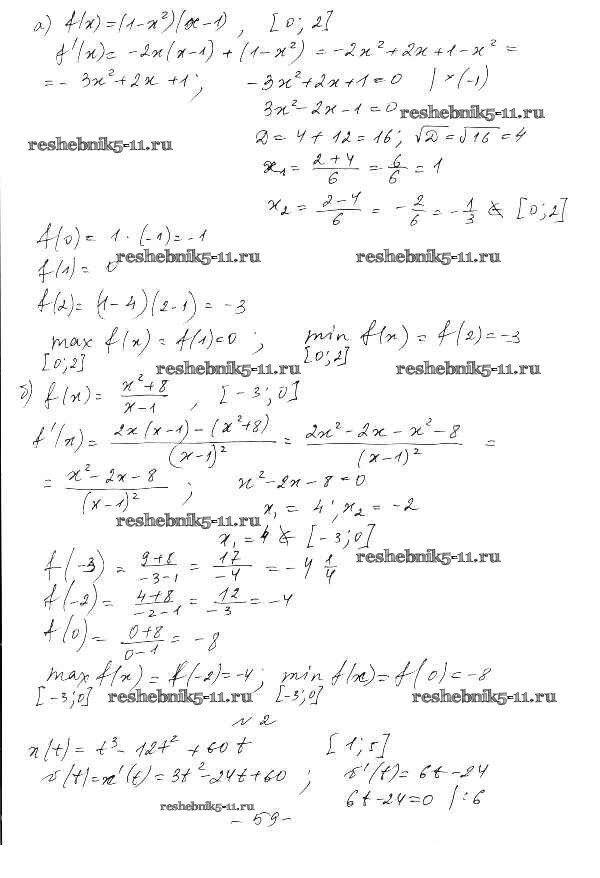 а) f(x)=(1-x²)(x-1), [0; 2]
f'(x)= -2x(x-1)+(1-x²) = -2x²+2x+1-x² =
=- 3x²+2x+1; -3x²+2x+1=0 | ×(-1)
3x²-2x-1=0 reshebnik5-11.ru
reshebnik5-11.ru D=4+12=16; √D=√16=4
x₁= (2+4)/6 = 6/6 = 1
x₂= (2-4)/6 = -2/6 = -1/3 ∉ [0; 2]
f(0)= 1·(-1)=-1
f(1)= 0 reshebnik5-11.ru reshebnik5-11.ru
f(2)= (1-4)(2-1) = -3
max f(x) = f(1)=0; min f(x) = f(2)=-3
[0; 2] reshebnik5-11.ru [0; 2] reshebnik5-11.ru
б) f(x)= (x²+8)/(x-1), [-3; 0]
f'(x)= (2x(x-1)-(x²+8))/(x-1)² = (2x²-2x-x²-8)/(x-1)² =
= (x²-2x-8)/(x-1)²; x²-2x-8=0
x₁ = 4; x₂ = -2
reshebnik5-11.ru
x₁=4 ∉ [-3; 0]
f(-3) = (9+8)/(-3-1) = 17/-4 = -4 1/4 reshebnik5-11.ru
f(-2)= (4+8)/(-2-1) = 12/-3 = -4
f(0)= (0+8)/(0-1) = -8
max f(x) = f(-2)=-4; min f(x)= f(0)=-8
[-3; 0] reshebnik5-11.ru [-3; 0] reshebnik5-11.ru
№ 2
x(t)= t³- 12t² + 60t [1; 5]
v(t)=x'(t)= 3t²-24t+60; v'(t)= 6t-24
6t-24=0 |:6
reshebnik5-11.ru
- 59-